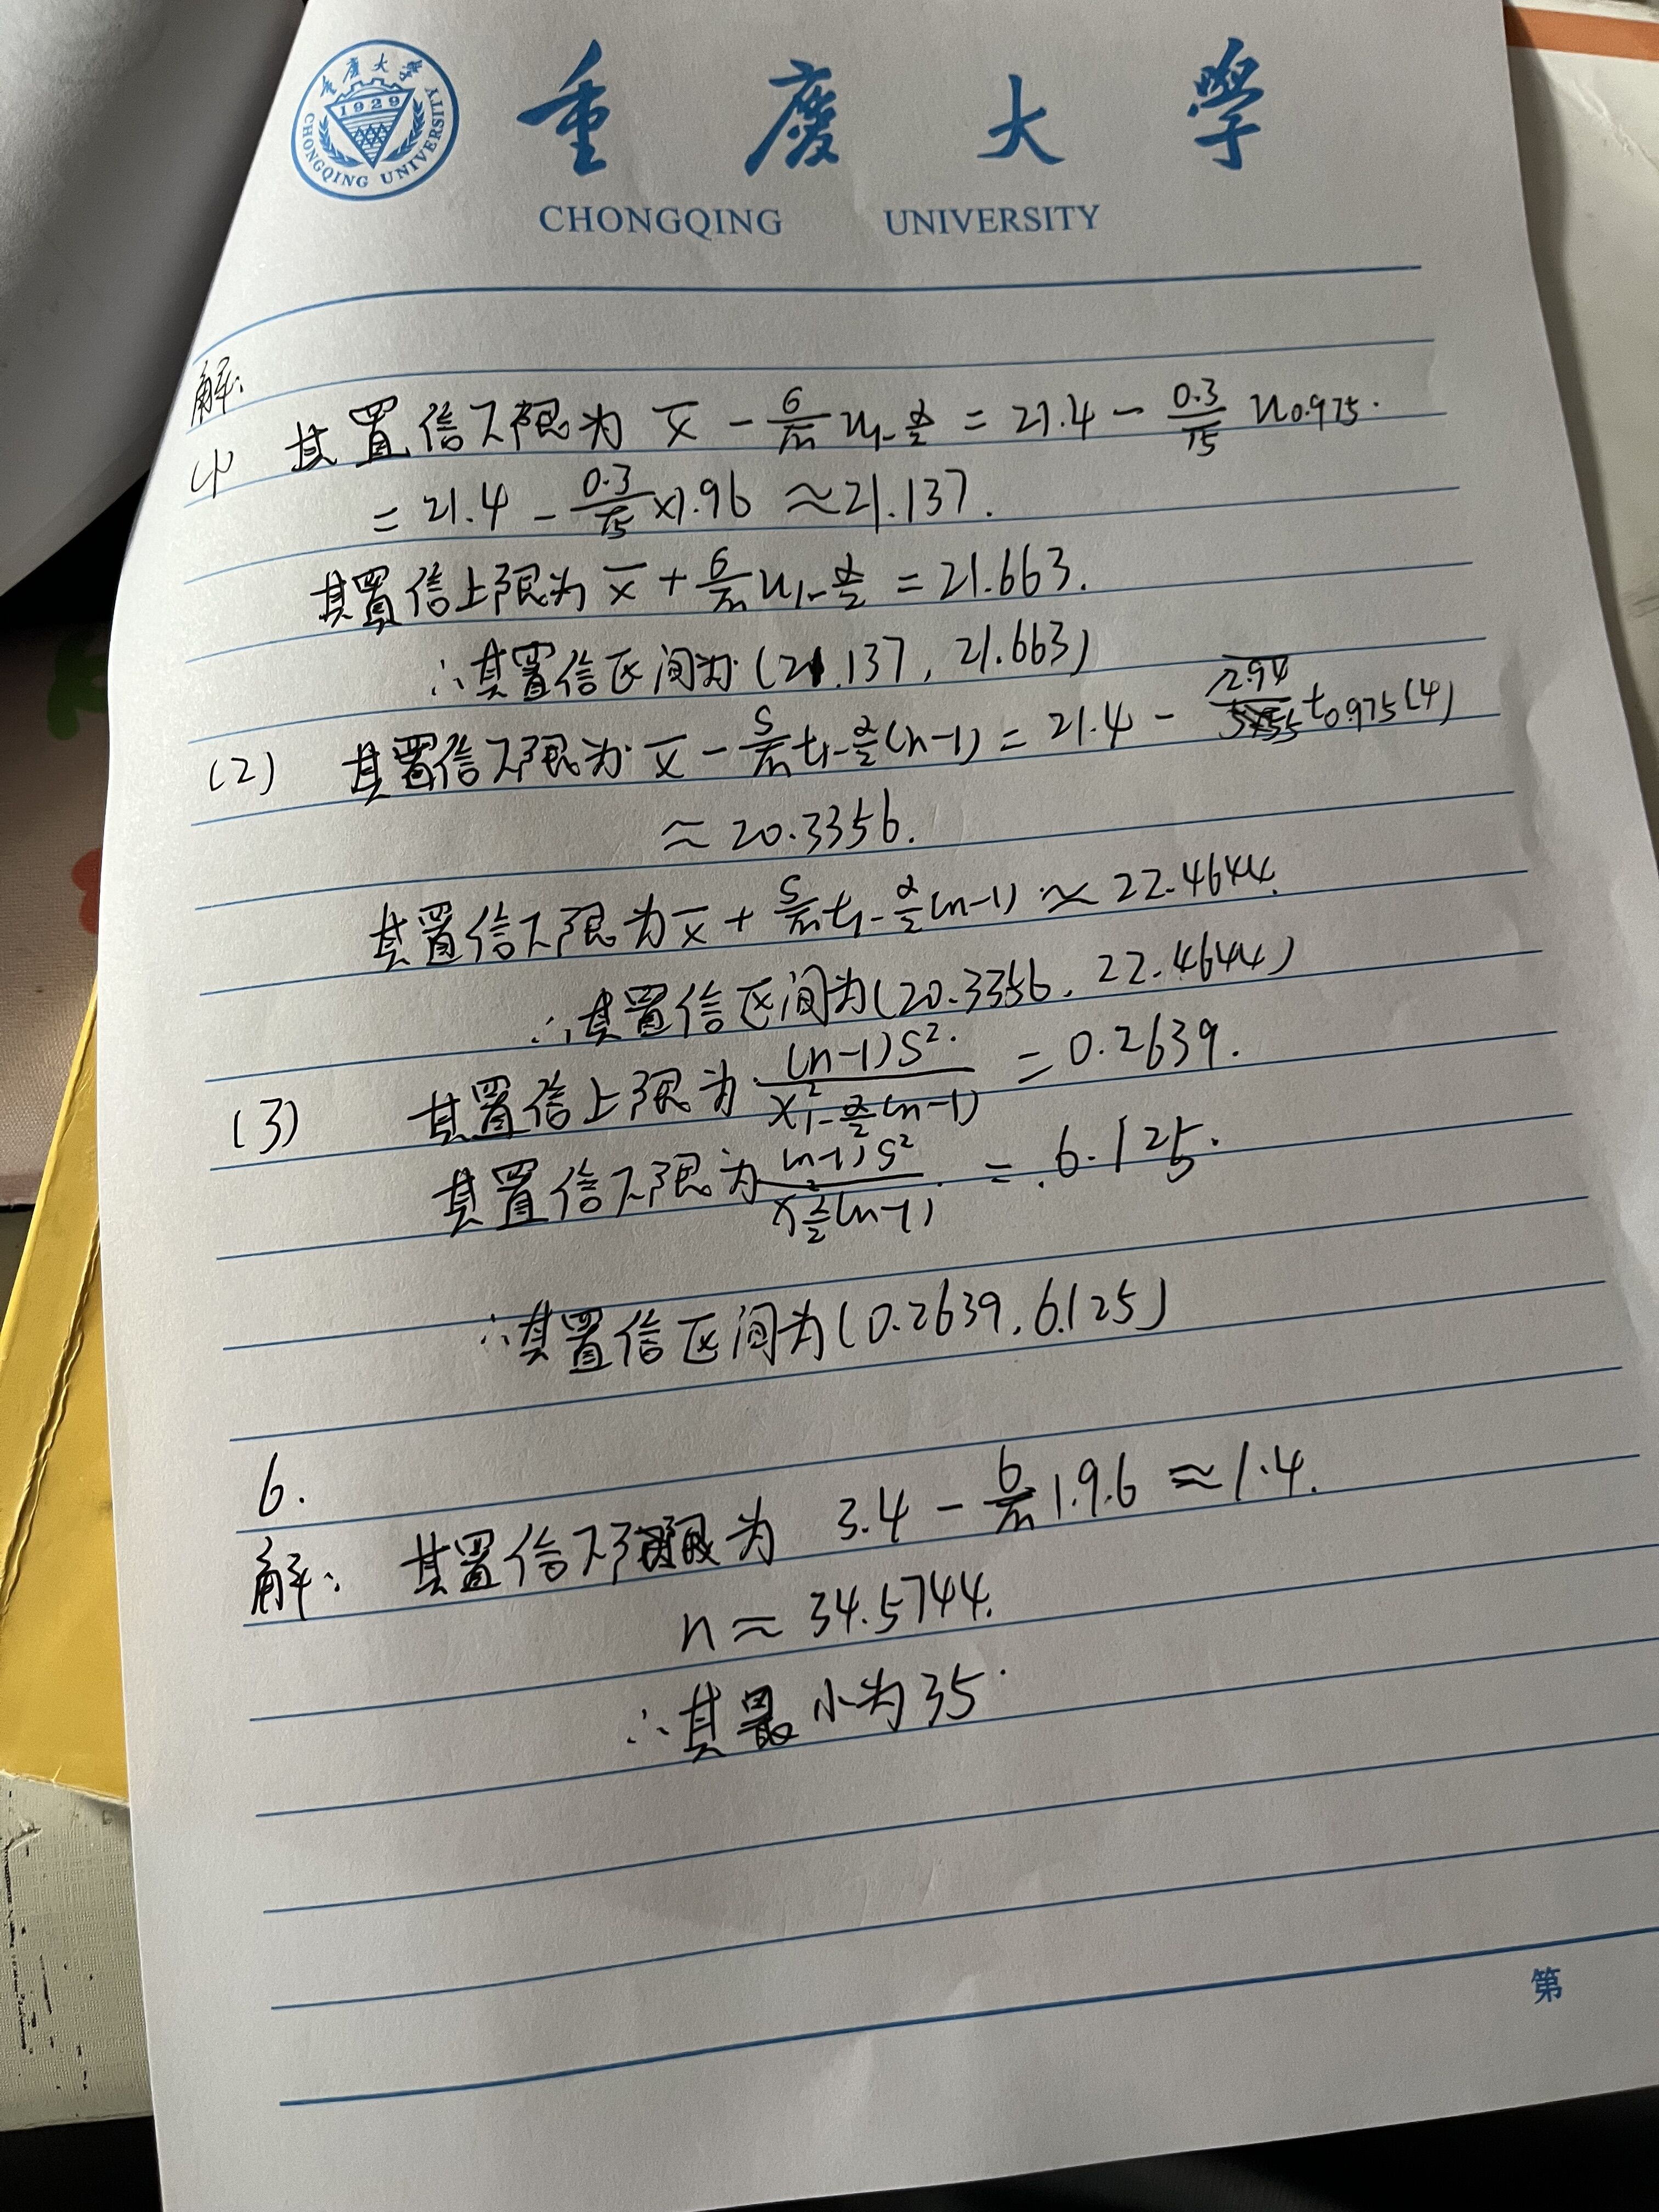 重庆大学
CHONGQING UNIVERSITY
1929
重慶大學
CHONGQING UNIVERSITY
解:
(1) 其置信下限为 x̄ - σ/√n u₁₋α/₂ = 21.4 - 0.3/√5 u0.975.
= 21.4 - 0.3/√5 ×1.96 ≈21.137.
其置信上限为 x̄ + σ/√n u₁₋α/₂ = 21.663.
∴其置信区间为(21.137, 21.663)
(2) 其置信下限为 x̄ - S/√n t₁₋α/₂(n-1) = 21.4 - t0.975(4)
≈ 20.3356.
其置信下限为 x̄ + S/√n t₁₋α/₂(n-1) ≈ 22.4644.
∴其置信区间为(20.3356, 22.4644)
(3) 其置信上限为 (n-1)S²/χ²₁₋α/₂(n-1) = 0.2639.
其置信下限为 (n-1)S²/χ²α/₂(n-1) = 6.125.
∴其置信区间为(0.2639, 6.125)
6.
解: 其置信下限为 3.4 - 6/√n 1.96 ≈ 1.4.
n ≈ 34.5744.
∴其最小为35.
第